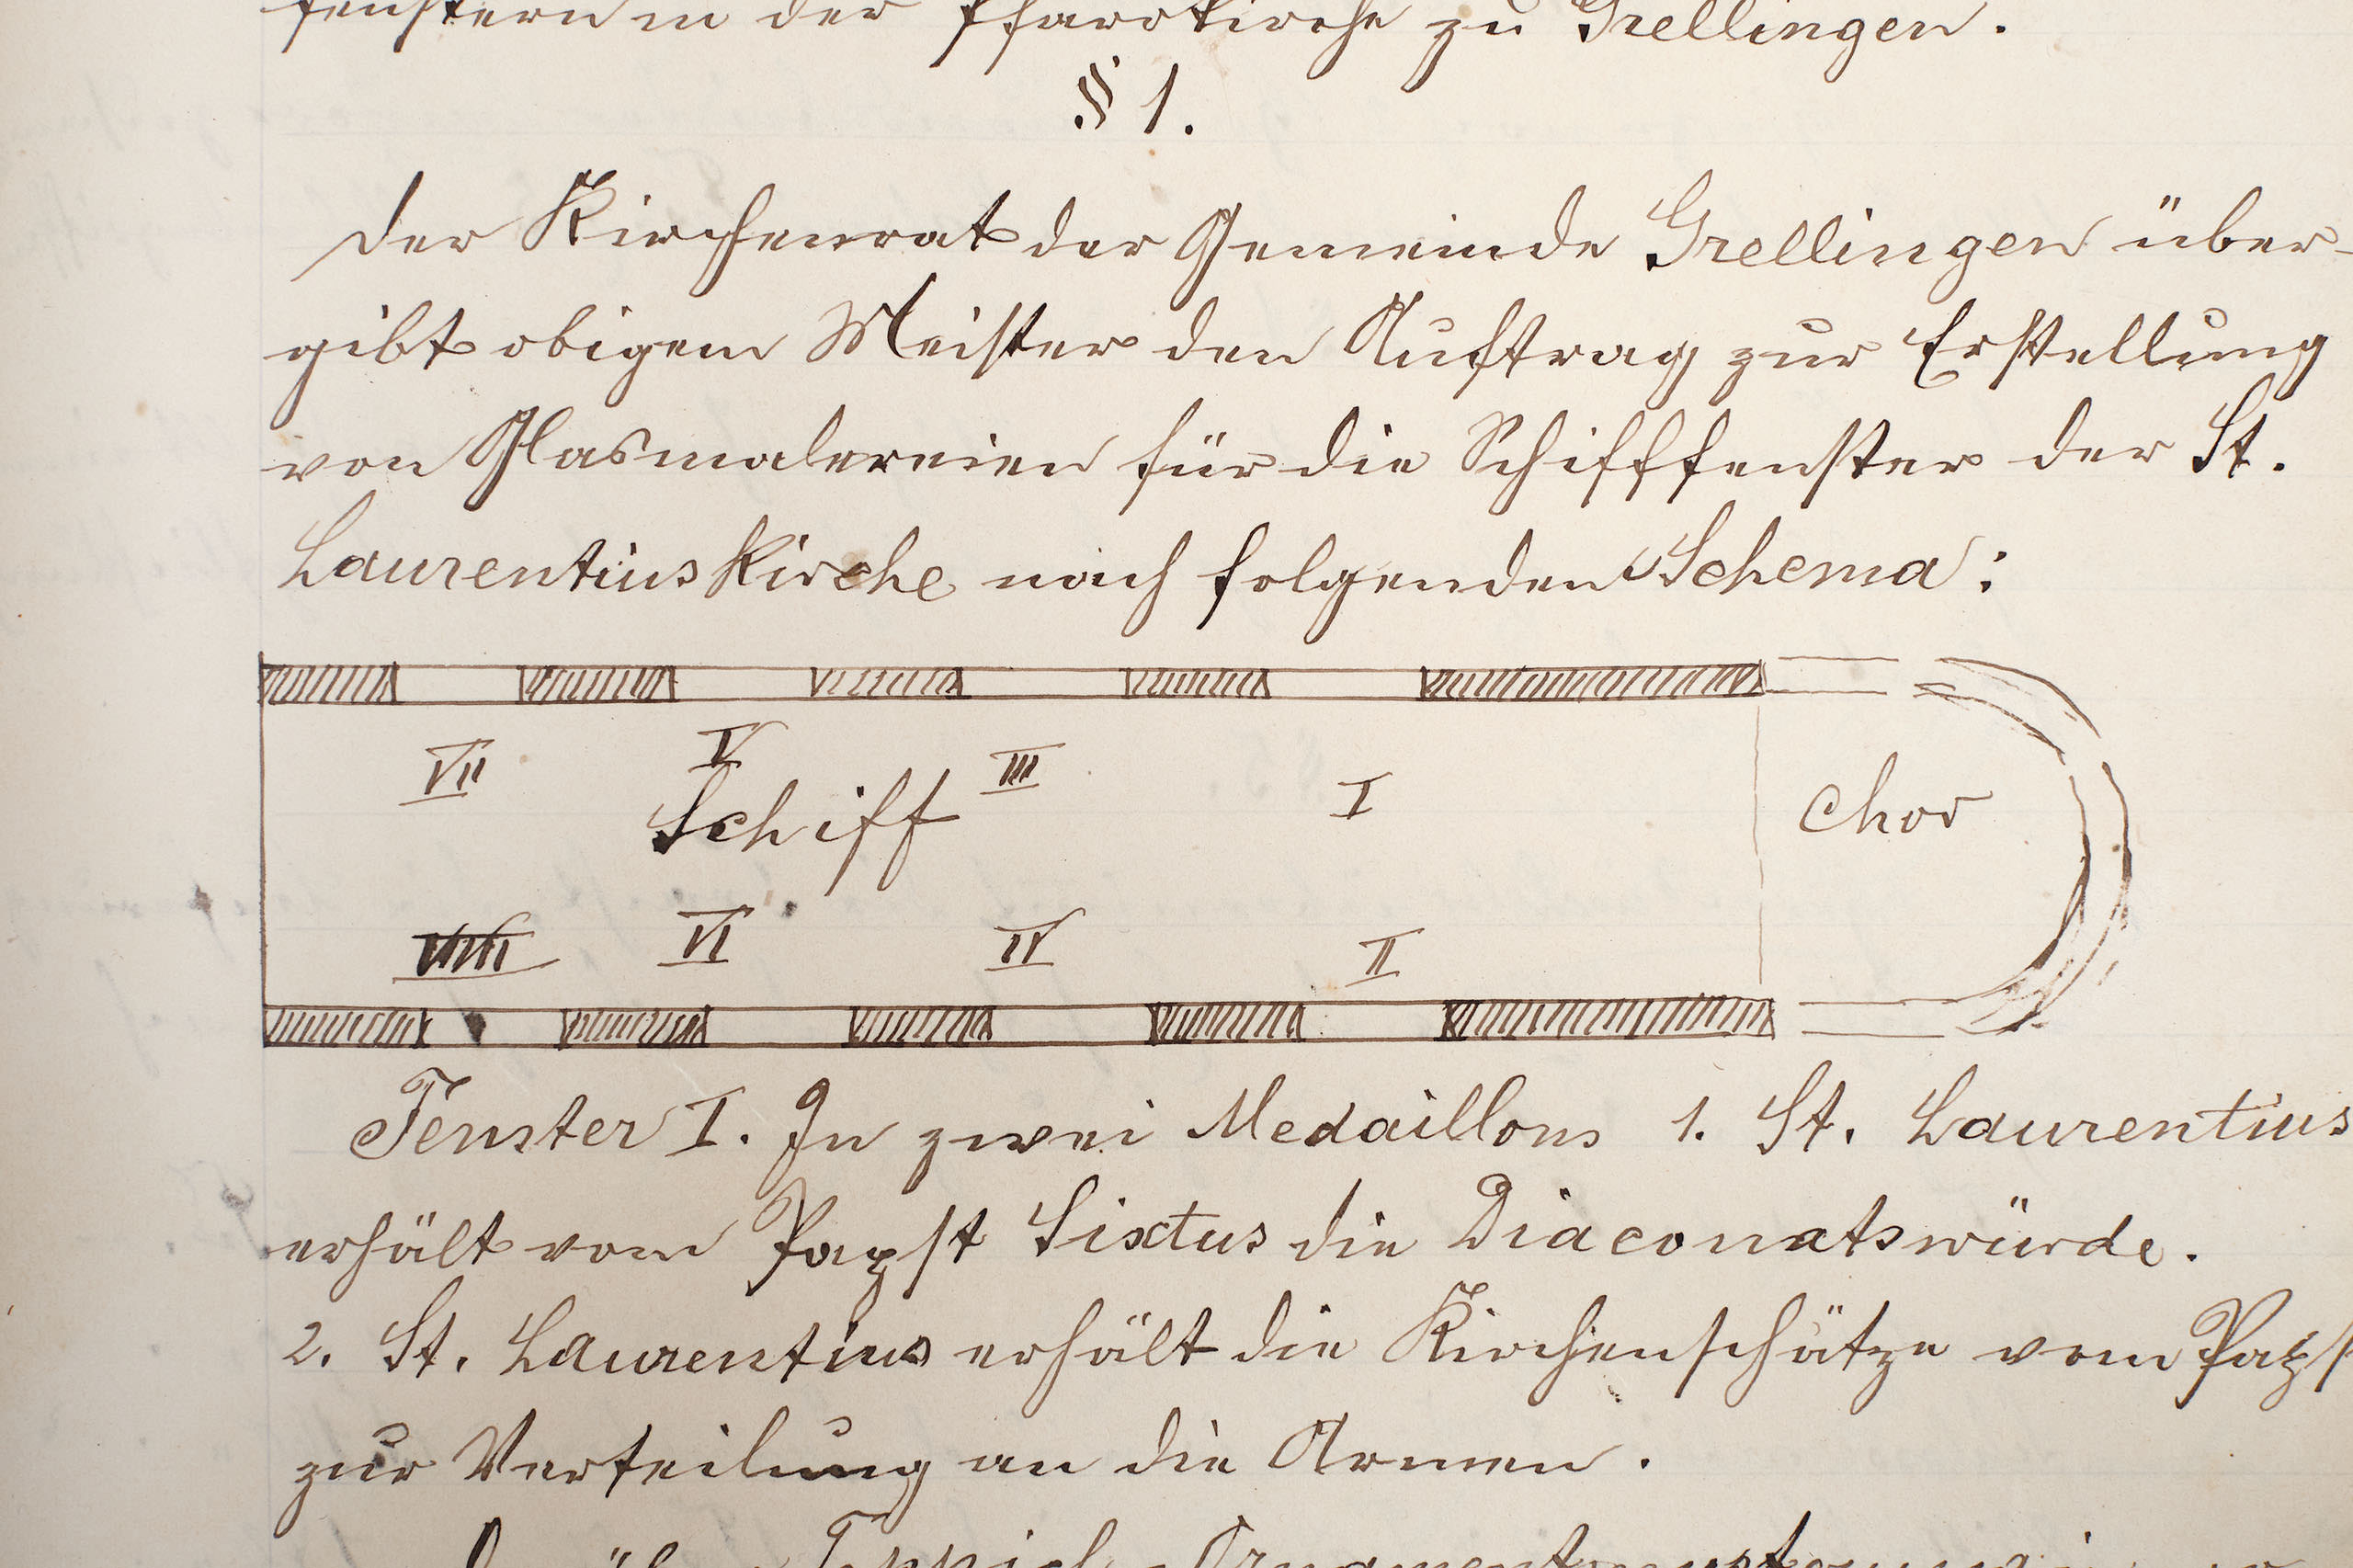 fenstern in der Pfarrkirche zu Grellingen.
§ 1.
Der Kirchenrat der Gemeinde Grellingen über-
gibt obigem Meister den Auftrag zur Erstellung
von Glasmalereien für die Schifffenster der St.
Laurentiuskirche nach folgenden Schema:
VII V III I
Schiff Chor
VIII VI IV II
Fenster I. In zwei Medaillons 1. St. Laurentius
erhält vom Papst Sixtus die Diaconatswürde.
2. St. Laurentius erhält die Kirchenschätze vom Papst
zur Verteilung an die Armen.